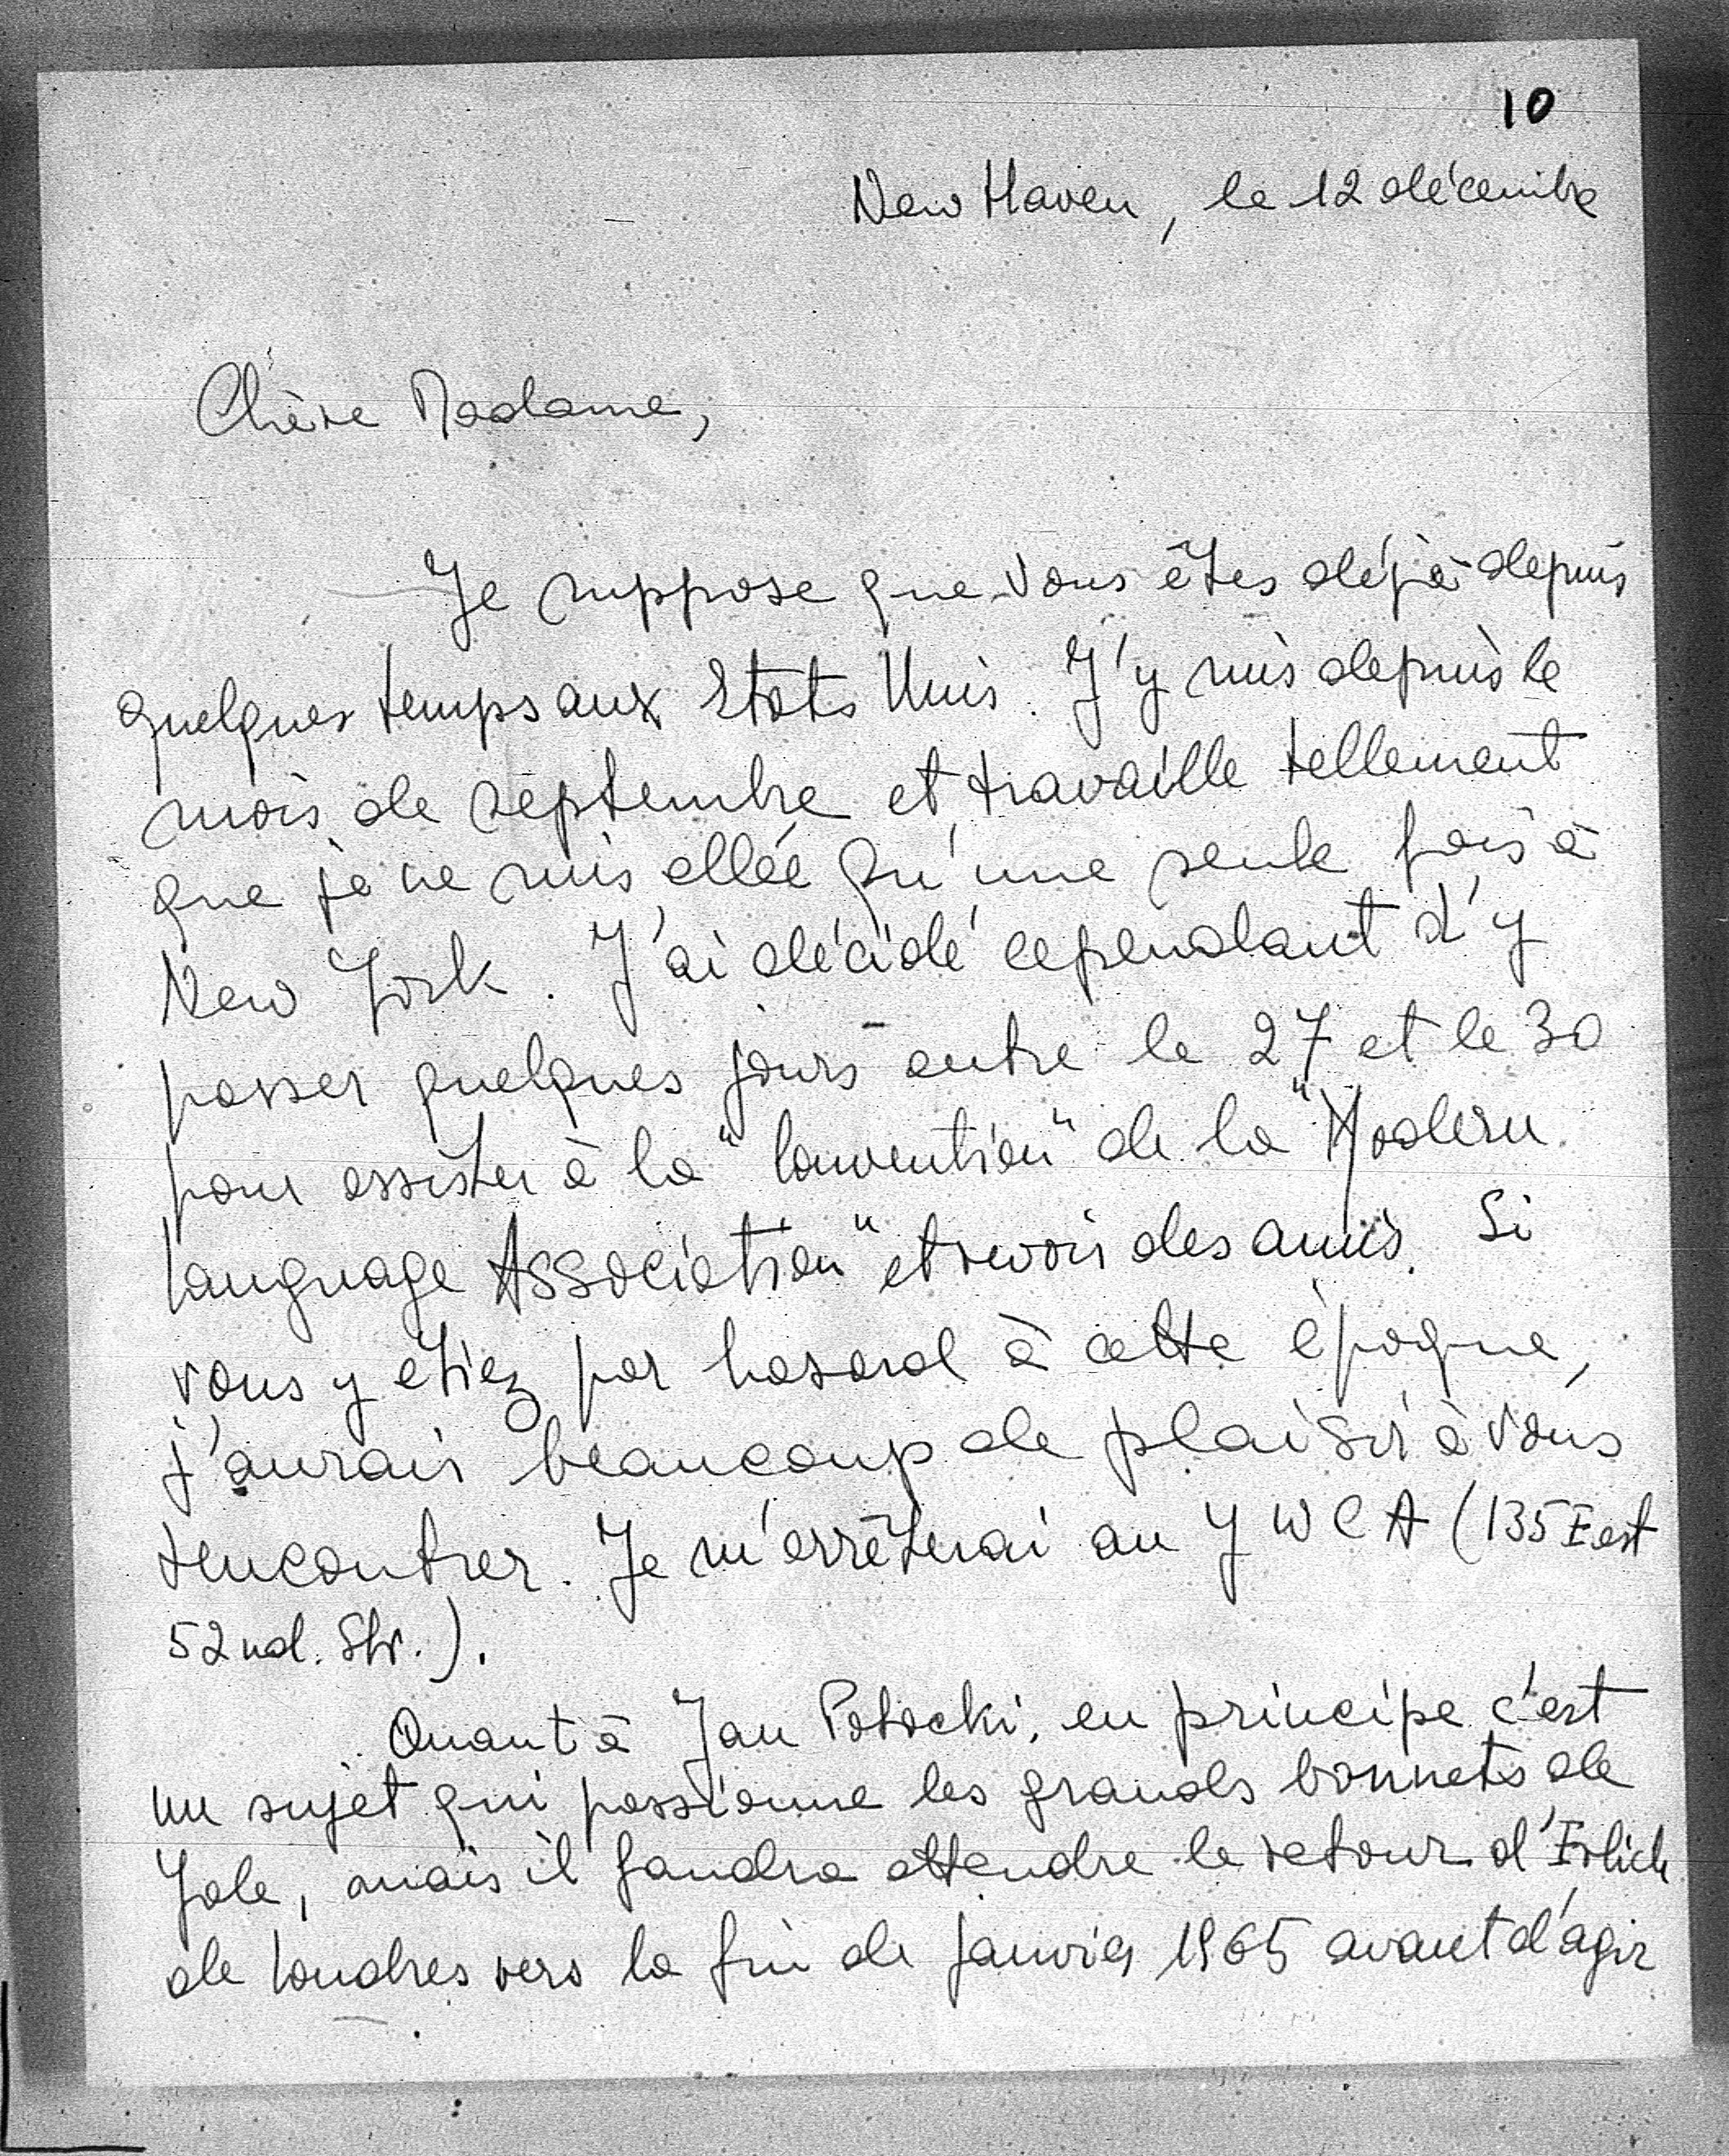 10
New Haven, le 12 décembre
Chère Madame,
Je suppose que vous êtes déjà depuis
quelques temps aux Etats Unis. J'y suis depuis le
mois de septembre et travaille tellement
que je ne suis allée qu'une seule fois à
New York. J'ai décidé cependant d'y
passer quelques jours entre le 27 et le 30
pour assister à la "Convention" de la "Modern
Language Association" et revoir des amis. Si
vous y étiez par hasard à cette époque,
j'aurais beaucoup de plaisir à vous
rencontrer. Je m'arrêterai au YWCA (135 East
52nd. Str.).
Quant à Jan Potocki, en principe c'est
un sujet qui passionne les grands bonnets de
Yale, mais il faudra attendre le retour d'Erlich
de Londres vers la fin de janvier 1965 avant d'agir